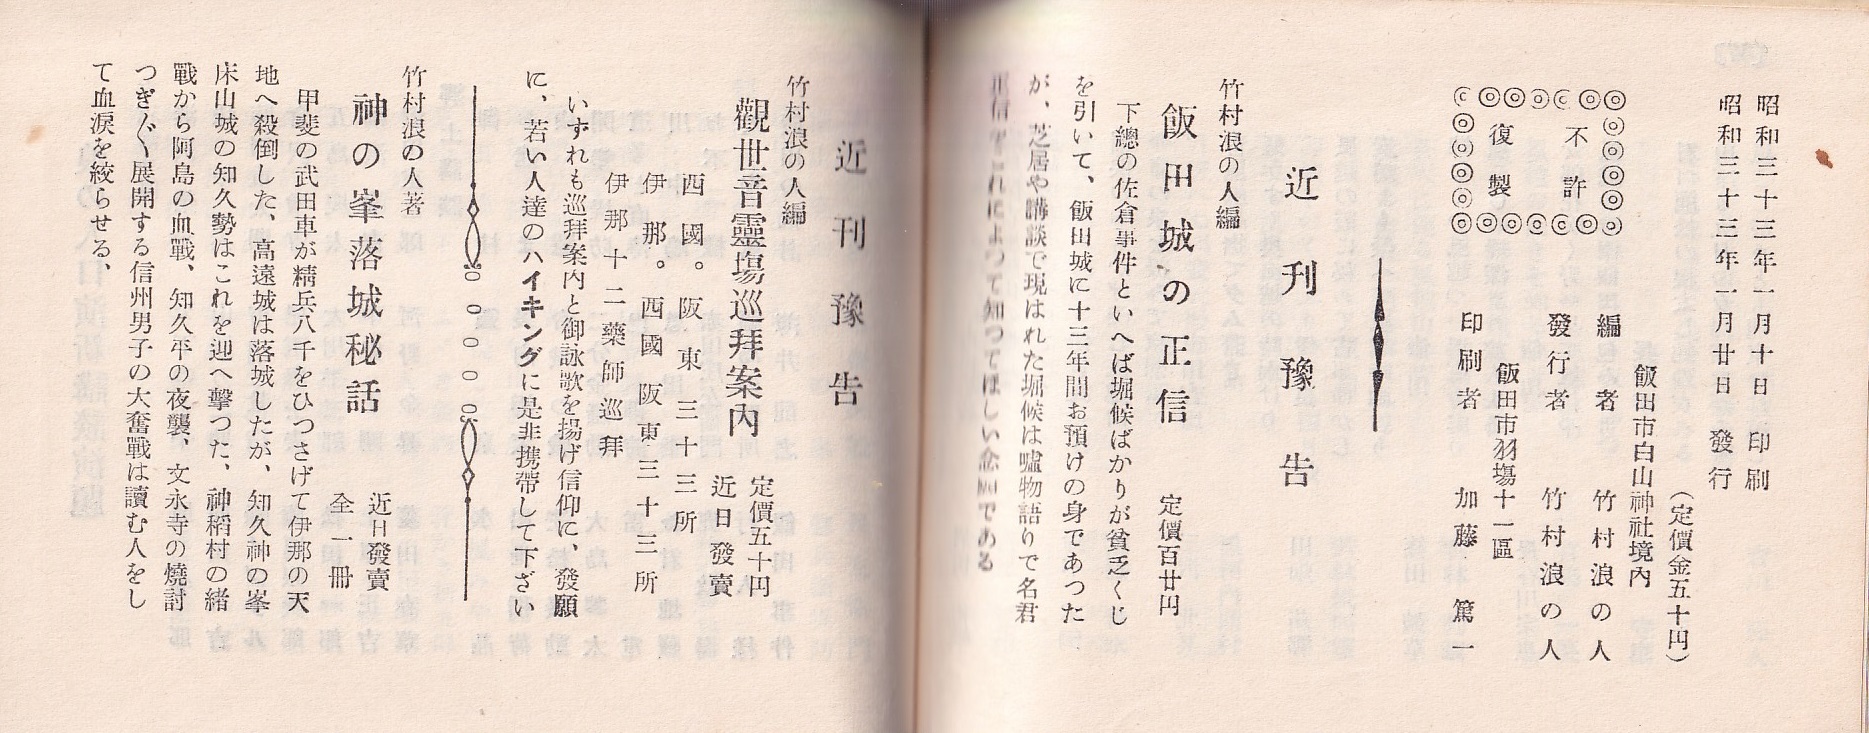 昭和三十三年一月十日 印刷
昭和三十三年一月廿日 發行
(定價金五十円)
不許
復製
飯田市白山神社境內
編者 竹村浪の人
發行者 竹村浪の人
飯田市羽場十一區
印刷者 加藤篤一
近刊豫告
竹村浪の人編
飯田城の正信 定價百廿円
下總の佐倉事件といへば堀候ばかりが貧乏くじ
を引いて、飯田城に十三年間お預けの身であつた
が、芝居や講談で現はれた堀候は噓物語りで名君
正信をこれによつて知つてほしい念願である
近刊豫告
竹村浪の人編
觀世音靈場巡拜案內
定價五十円
近日發賣
西國。阪東三十三所
伊那。西國阪東三十三所
伊那十二藥師巡拜
いずれも巡拜案內と御詠歌を揚げ信仰に、發願
に、若い人達のハイキングに是非携帶して下ざい
竹村浪の人著
神の峯落城秘話
近日發賣
全一冊
甲斐の武田車が精兵八千をひつさげて伊那の天
地へ殺倒した、高遠城は落城したが、知久神の峯
床山城の知久勢はこれを迎へ擊つた、神稻村の緖
戰から阿島の血戰、知久平の夜襲、文永寺の燒討
つぎ〲展開する信州男子の大奮戰は讀む人をし
て血淚を絞らせる、